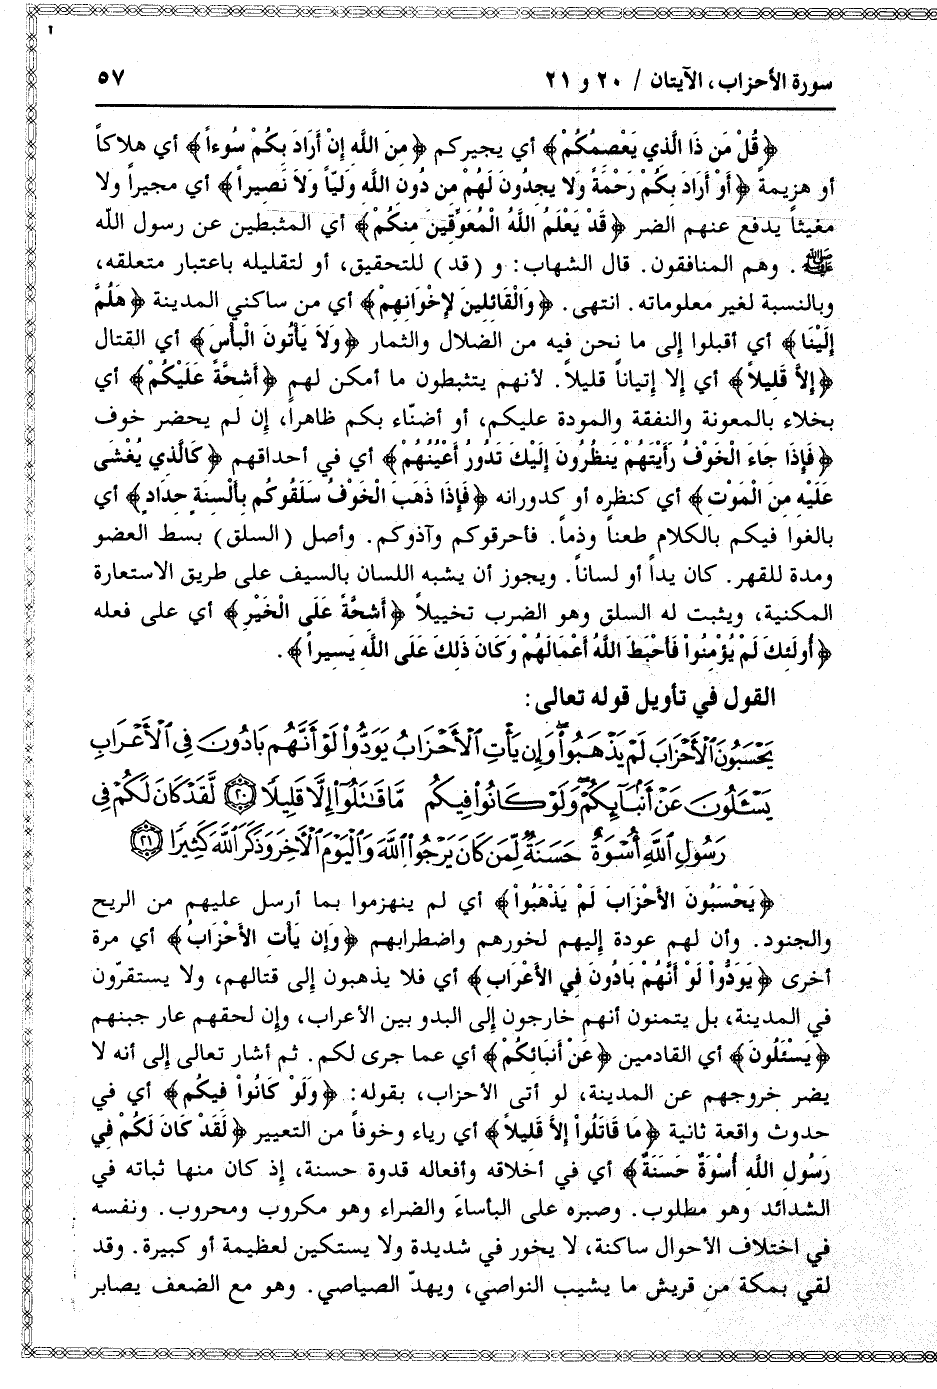 ١
سورة الأحزاب، الآيتان / ٢٠ و ٢١ ٥٧
﴿قُلْ مَن ذَا الَّذي يَعْصِمُكُمْ﴾ أي يجيركم ﴿مِنَ اللَّهِ إِنْ أَرَادَ بِكُمْ سُوءاً﴾ أي هلاكاً
أو هزيمةً ﴿أَوْ أَرَادَ بِكُمْ رَحْمَةً وَلا يَجِدُونَ لَهُمْ مِن دُونِ اللَّهِ وَلِيّاً وَلاَ نَصِيراً﴾ أي مجيراً ولا
مغيثاً يدفع عنهم الضر ﴿قَدْ يَعْلَمُ اللَّهُ الْمُعَوِّقِينَ مِنكُمْ﴾ أي المثبطين عن رسول الله
ﷺ. وهم المنافقون. قال الشهاب: و (قد) للتحقيق، أو لتقليله باعتبار متعلقه،
وبالنسبة لغير معلوماته. انتهى. ﴿وَالْقَائِلِينَ لإِخْوَانِهِمْ﴾ أي من ساكني المدينة ﴿هَلُمَّ
إِلَيْنَا﴾ أي أقبلوا إلى ما نحن فيه من الضلال والثمار ﴿وَلاَ يَأْتُونَ الْبَأْسَ﴾ أي القتال
﴿إِلاَّ قَلِيلاً﴾ أي إلا إتياناً قليلاً. لأنهم يتثبطون ما أمكن لهم ﴿أَشِحَّةً عَلَيْكُمْ﴾ أي
بخلاء بالمعونة والنفقة والمودة عليكم، أو أضنّاء بكم ظاهراً، إن لم يحضر خوف
﴿فَإِذَا جَاءَ الْخَوْفُ رَأَيْتَهُمْ يَنظُرُونَ إِلَيْكَ تَدُورُ أَعْيُنُهُمْ﴾ أي في أحداقهم ﴿كَالَّذِي يُغْشَى
عَلَيْهِ مِنَ الْمَوْتِ﴾ أي كنظره أو كدورانه ﴿فَإِذَا ذَهَبَ الْخَوْفُ سَلَقُوكُم بِأَلْسِنَةٍ حِدَادٍ﴾ أي
بالغوا فيكم بالكلام طعناً وذماً. فأحرقوكم وآذوكم. وأصل (السلق) بسط العضو
ومدة للقهر. كان يداً أو لساناً. ويجوز أن يشبه اللسان بالسيف على طريق الاستعارة
المكنية، ويثبت له السلق وهو الضرب تخييلاً ﴿أَشِحَّةً عَلَى الْخَيْرِ﴾ أي على فعله
﴿أُولَئِكَ لَمْ يُؤْمِنُواْ فَأَحْبَطَ اللَّهُ أَعْمَالَهُمْ وَكَانَ ذَلِكَ عَلَى اللَّهِ يَسِيراً﴾.
القول في تأويل قوله تعالى:
يَحْسَبُونَ ٱلْأَحْزَابَ لَمْ يَذْهَبُوا۟ ۖ وَإِن يَأْتِ ٱلْأَحْزَابُ يَوَدُّوا۟ لَوْ أَنَّهُم بَادُونَ فِى ٱلْأَعْرَابِ
يَسْـَٔلُونَ عَنْ أَنۢبَآئِكُمْ ۖ وَلَوْ كَانُوا۟ فِيكُم مَّا قَـٰتَلُوٓا۟ إِلَّا قَلِيلًا ﴿٢٠﴾ لَّقَدْ كَانَ لَكُمْ فِى
رَسُولِ ٱللَّهِ أُسْوَةٌ حَسَنَةٌ لِّمَن كَانَ يَرْجُوا۟ ٱللَّهَ وَٱلْيَوْمَ ٱلْأَخِرَ وَذَكَرَ ٱللَّهَ كَثِيرًا ﴿٢١﴾
﴿يَحْسَبُونَ الأَحْزَابَ لَمْ يَذْهَبُواْ﴾ أي لم ينهزموا بما أرسل عليهم من الريح
والجنود. وأن لهم عودة إليهم لخورهم واضطرابهم ﴿وَإِن يَأْتِ الأَحْزَابُ﴾ أي مرة
أخرى ﴿يَوَدُّواْ لَوْ أَنَّهُمْ بَادُونَ فِي الأَعْرَابِ﴾ أي فلا يذهبون إلى قتالهم، ولا يستقرّون
في المدينة، بل يتمنون أنهم خارجون إلى البدو بين الأعراب، وإن لحقهم عار جبنهم
﴿يَسْئَلُونَ﴾ أي القادمين ﴿عَنْ أَنبَائِكُمْ﴾ أي عما جرى لكم. ثم أشار تعالى إلى أنه لا
يضر خروجهم عن المدينة، لو أتى الأحزاب، بقوله: ﴿وَلَوْ كَانُواْ فِيكُم﴾ أي في
حدوث واقعة ثانية ﴿مَا قَاتَلُواْ إِلاَّ قَلِيلاً﴾ أي رياء وخوفاً من التعيير ﴿لَقَدْ كَانَ لَكُمْ فِي
رَسُولِ اللَّهِ أُسْوَةٌ حَسَنَةٌ﴾ أي في أخلاقه وأفعاله قدوة حسنة، إذ كان منها ثباته في
الشدائد وهو مطلوب. وصبره على البأساء والضراء وهو مكروب ومحروب. ونفسه
في اختلاف الأحوال ساكنة، لا يخور في شديدة ولا يستكين لعظيمة أو كبيرة. وقد
لقي بمكة من قريش ما يشيب النواصي، ويهدّ الصياصي. وهو مع الضعف يصابر